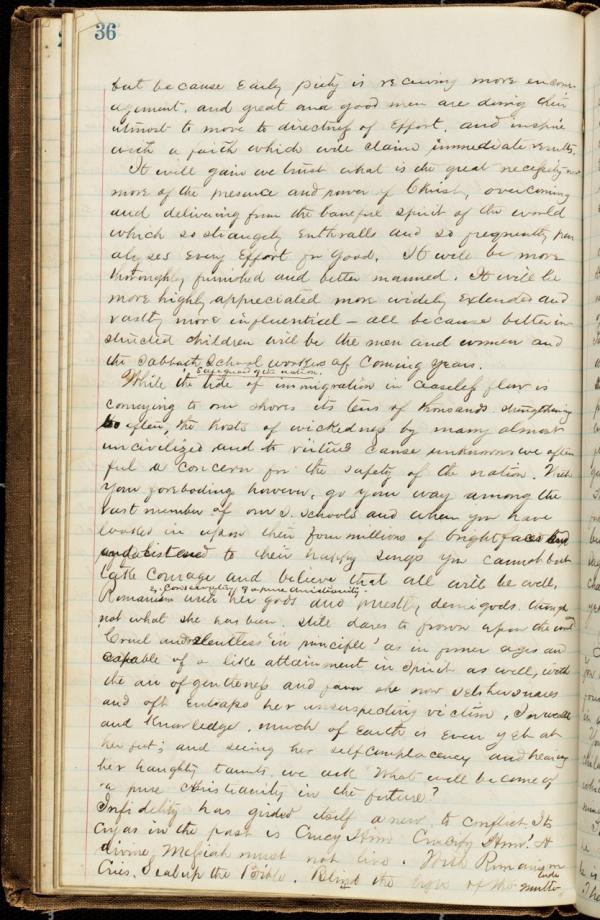 36
but because Early piety is receiving more encour
agement. and great and good men are doing their
utmost to move to directness of Effort. and inspire
with a faith which will claim immediate results.
It will gain we trust what is the great necessity
more of the presence and power of Christ, overcoming
and delivering from the baneful spirit of the world
which so strangely Enthralls and so frequently par
alyses Every Effort for Good. It will be more
thoroughly furnished and better manned. It will be
more highly appreciated more widely Extended and
vastly more influential - all because better in-
structed children will be the men and women and
the Sabbath School workers of Coming years.
Safeguard of the nation.
While the tide of immigration in Ceaseless flow is
conveying to our shores its tens of thousands strengthening
so often, the hosts of wickedness by many almost
uncivilized and to virtues cause unknown we often
feel a concern for the safety of the nation. With
your foreboding however, go your way among the
vast number of our S. Schools and when you have
looked in upon their four millions of bright faces and
and listened to their happy songs you cannot but
take Courage and believe that all will be well.
2, Conservator of a pure Christianity.
Romanism with her gods and priestly demigods. though
not what she has been. still dares to frown upon the
Cruel and relentless in principle as in former ages and
capable of a like attainment in Spirit as well, with
the air of gentleness and favor she now sets her snares
and oft Entraps her unsuspecting victim. In wealth
and Knowledge. much of Earth is Even yet at
her feet; and seeing her self complacency and hearing
her haughty taunts, we ask What will become of
a pure Christianity in the future?
Infidelity has girded itself anew to conflict. Its
Cry as in the past is Crucify Him Crucify Him! A
divine Messiah must not live. With Romanism
Cries. Seal up the Bible. Blind the Eyes of the multi
tude